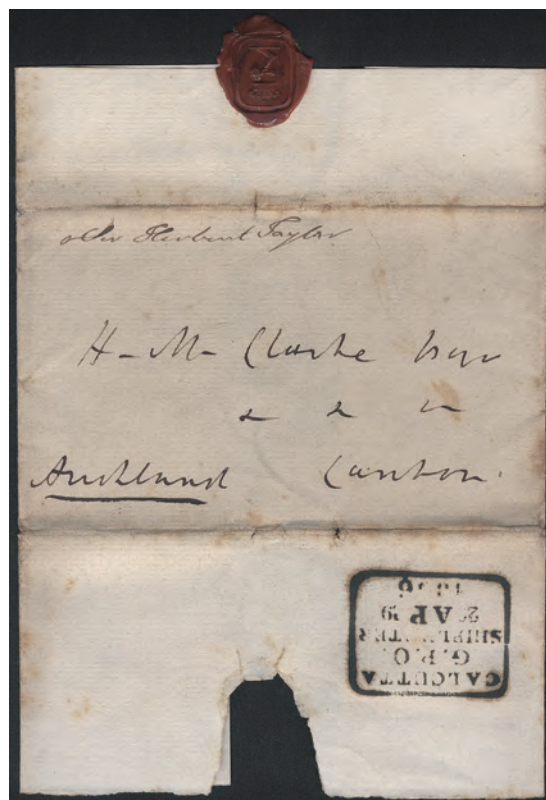 Sir Herbert Taylor
H. M. Clarke Esqr
& & &
Auckland Canton.
CALCUTTA
G.P.O.
SHIP LETTER
AP
1836